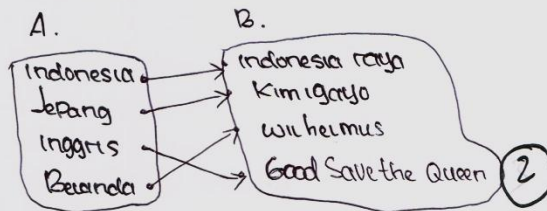 A.
B.
Indonesia
Jepang
Inggris
Beranda
Indonesia raya
Kimigayo
Wilhelmus
Good Save the Queen
2